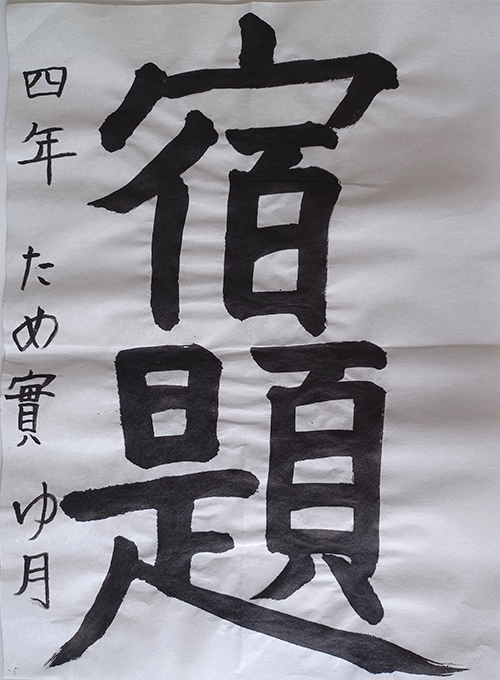 宿題
四年 ため實 ゆ月